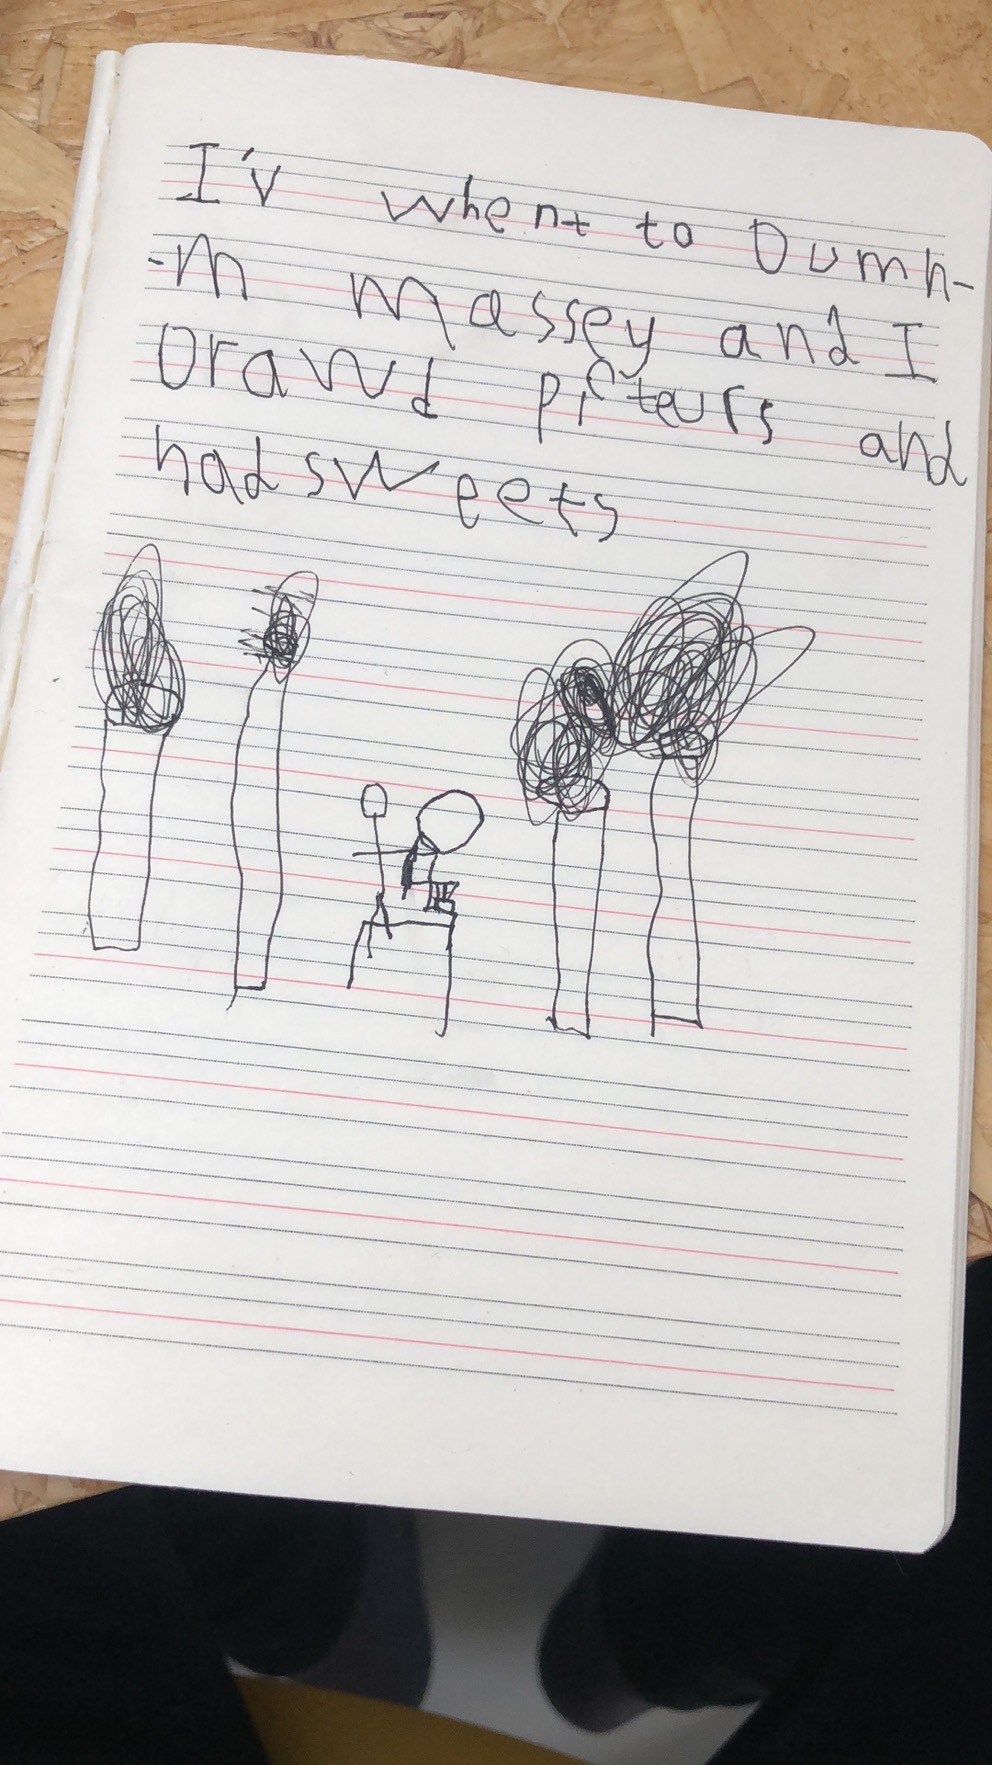 I'v whent to Dumh-
-m massey and I
Drawd picteurs and
had sweets